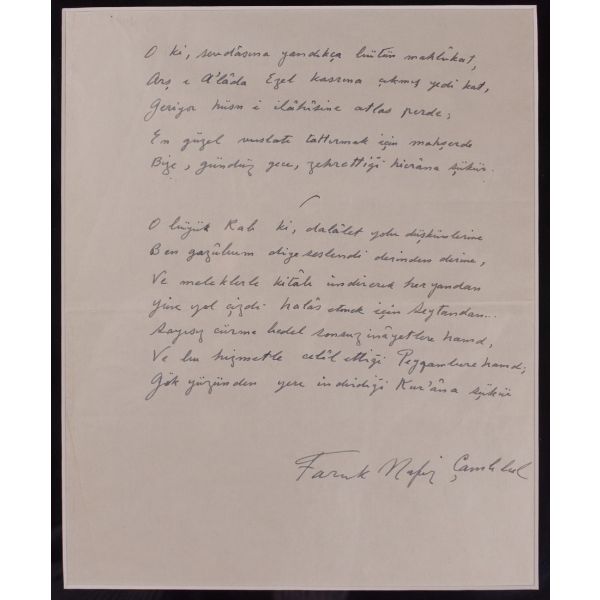 O ki, sevdâsına yandıkça bütün mahlûkat,
Arş ı A'lâda Ezel kasrına çıkmış yedi kat,
Geriyor hüsn i ilâhîsine atlas perde;
En güzel vuslatı tattırmak için mahşerde
Bize, gündüz gece, zehrettiği hicrâna şükür.
O büyük Rab ki, dalâlet yolu düşkünlerine
Ben gafûrum diye seslendi derinden derine,
Ve meleklerle kitâb indirerek her yandan
Yine yol çizdi halâs etmek için Şeytandan...
Sayısız cürme bedel sonsuz inâyetlere hamd,
Ve bu hizmetle celbettiği Peygambere hamd;
Gök yüzünden yere indirdiği Kur'âna şükür
Faruk Nafiz Çamlıbel